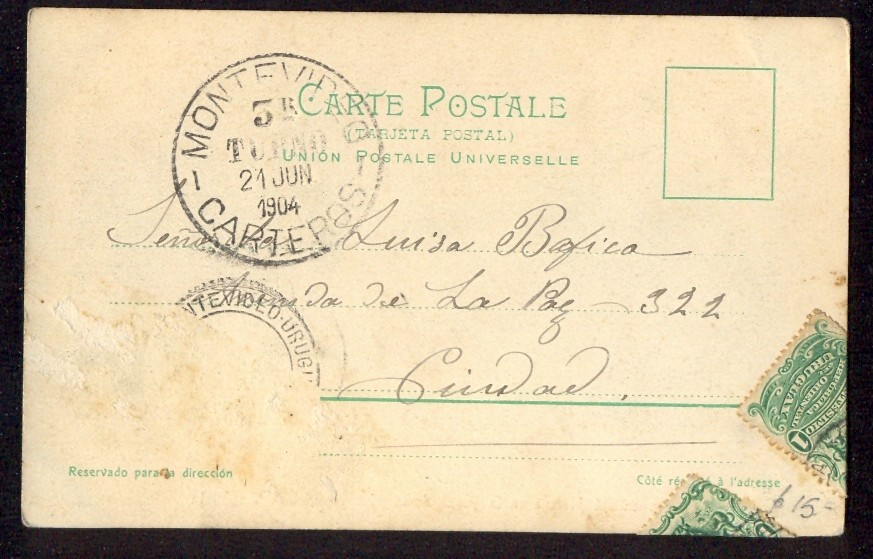 MONTEVIDEO
3R
TURNO
21 JUN
1904
CARTEROS
CARTE POSTALE
(TARJETA POSTAL)
UNIÓN POSTALE UNIVERSELLE
Luisa Bafica
de La Paz 322
Ciudad
NTEVIDEO-URUGU
Reservado para la dirección
Côté ré à l'adresse
URUGUAY
1
$15-